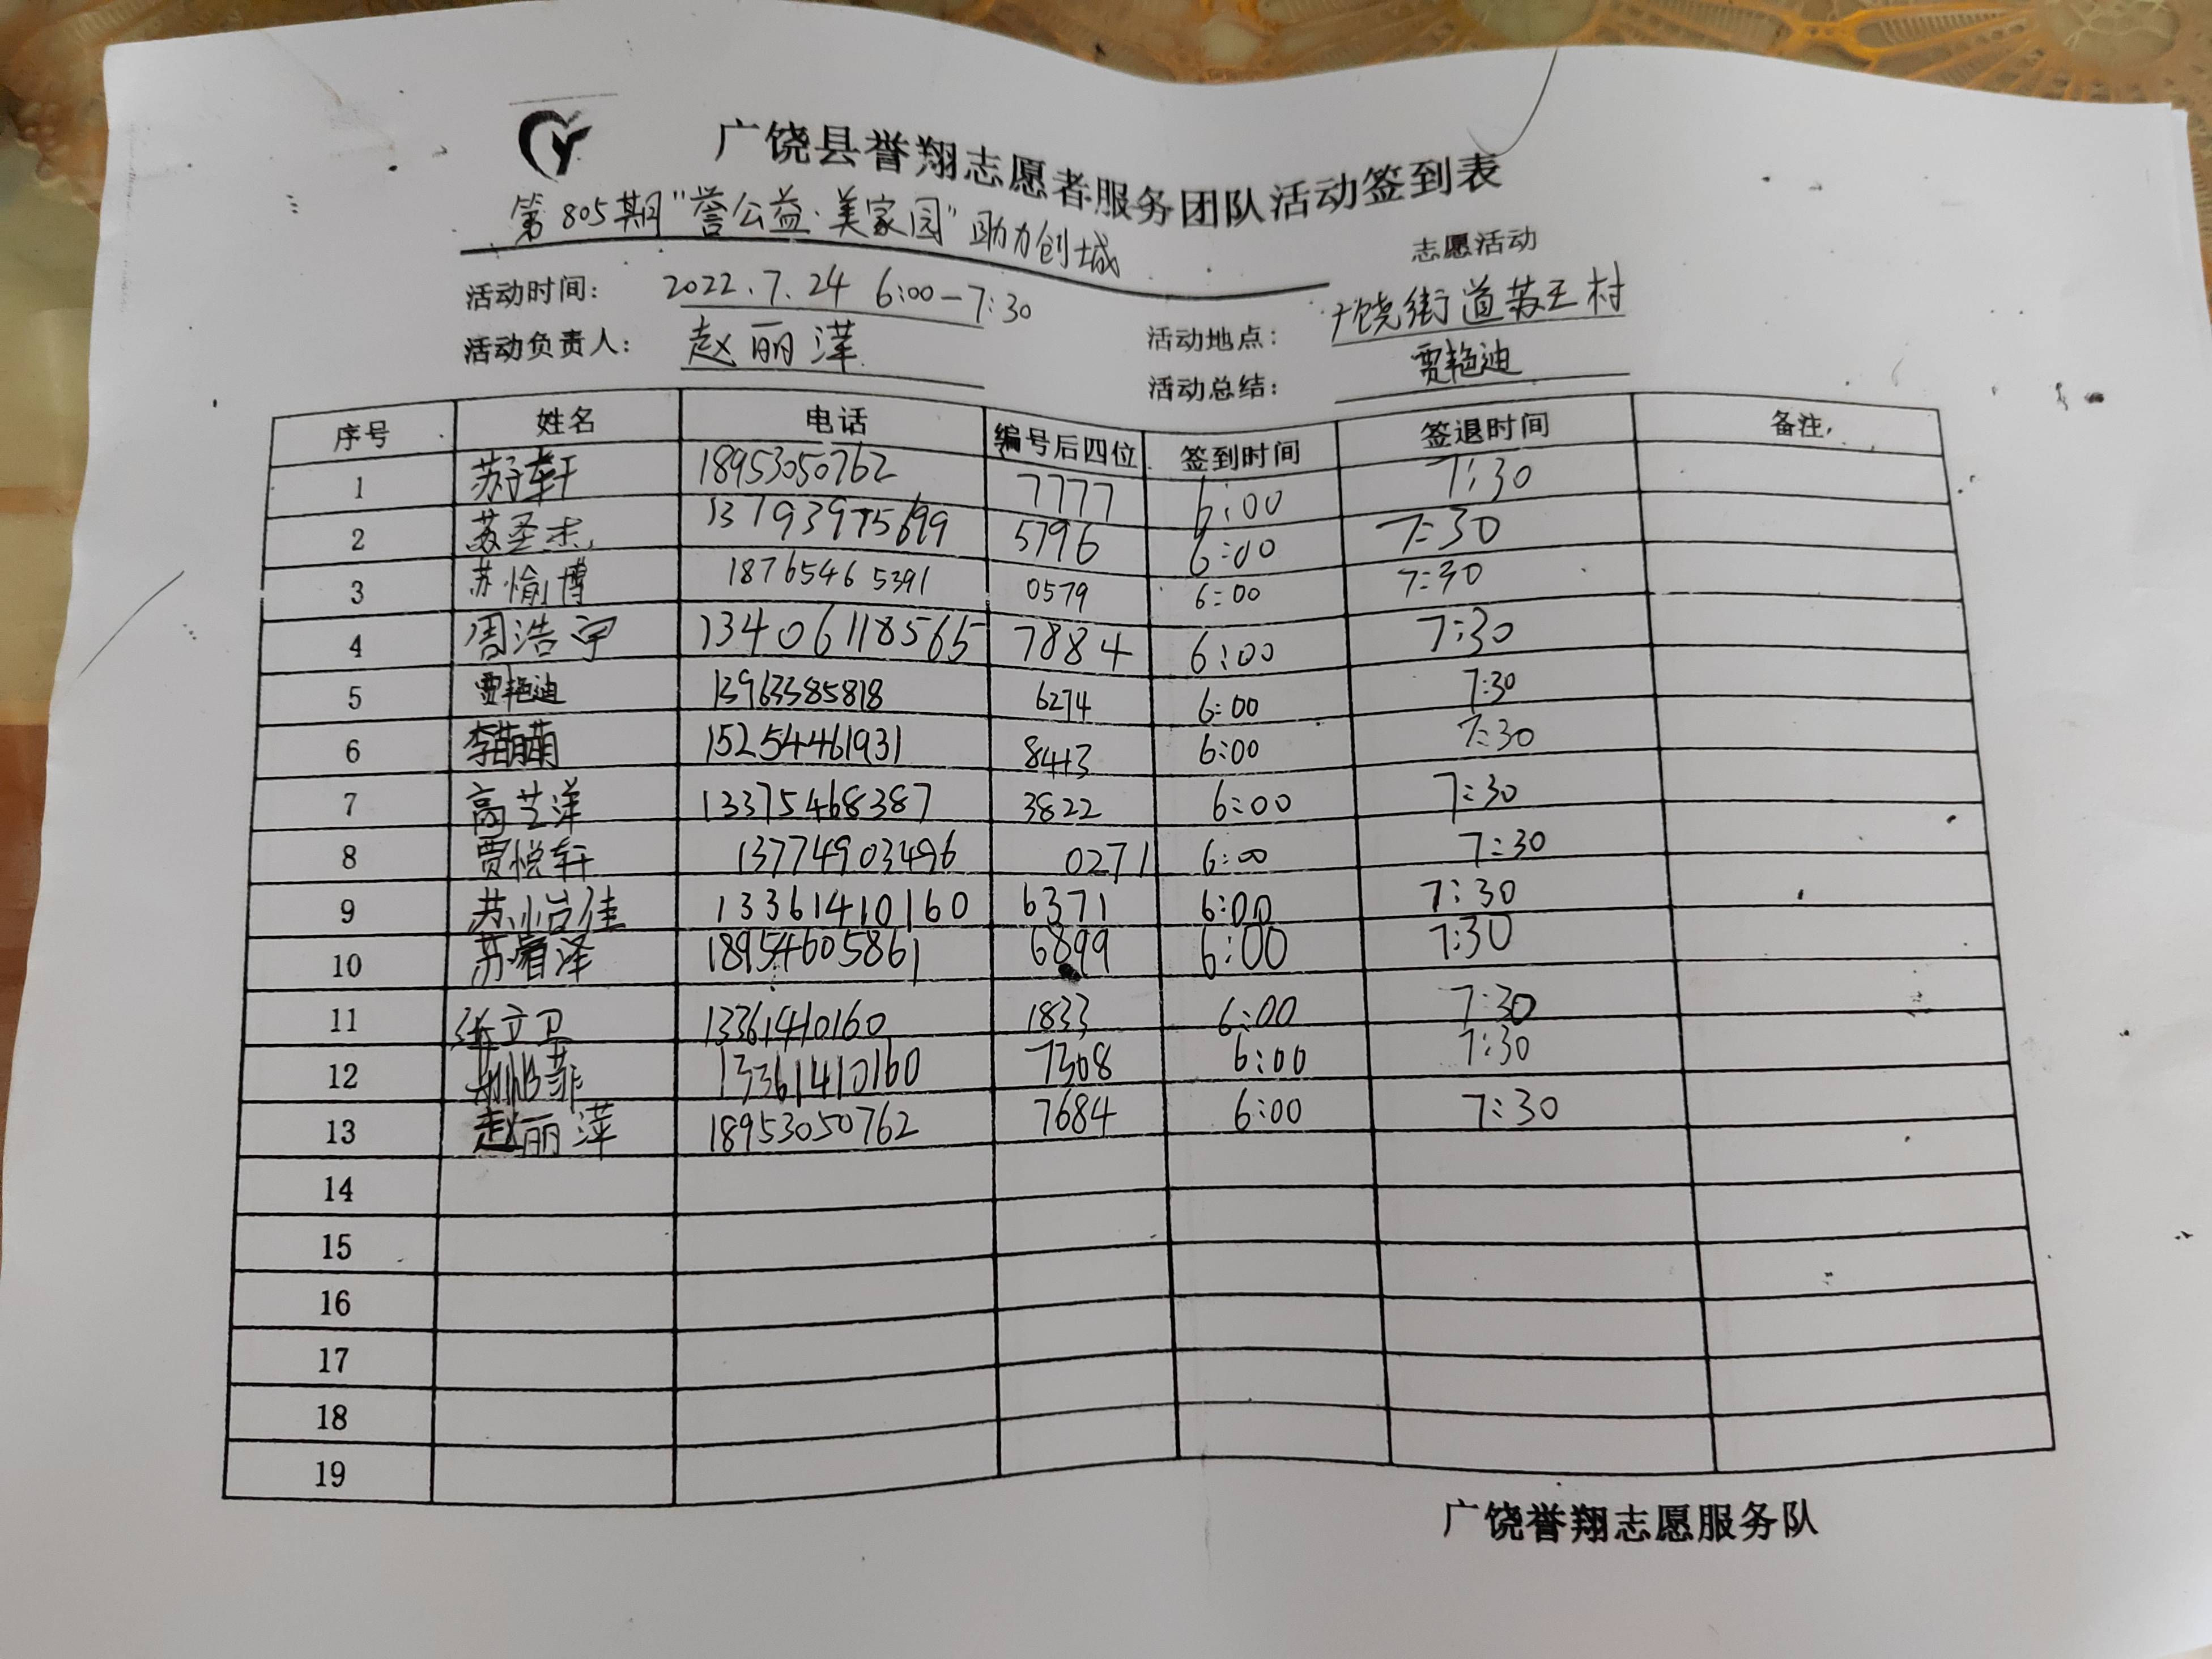 广饶县誉翔志愿者服务团队活动签到表
第805期"誉公益·美家园"助力创城 志愿活动
活动时间: 2022.7.24 6:00-7:30 活动地点: 广饶街道苏王村
活动负责人: 赵丽萍 活动总结: 贾艳迪
序号 姓名 电话 编号后四位 签到时间 签退时间 备注
1 苏子轩 18953050762 7777 6:00 7:30
2 苏圣杰 5796 6:00 7:30
3 苏愉博 18765465391 0579 6:00 7:30
4 周浩宇 13406118565 7884 6:00 7:30
5 贾艳迪 13963385818 6274 6:00 7:30
6 李萌萌 15254461931 8443 6:00 7:30
7 高艺洋 13375468387 3822 6:00 7:30
8 贾悦轩 13774903496 0271 6:00 7:30
9 13361410160 6371 6:00 7:30
10 苏睿泽 18954605861 6899 6:00 7:30
11 张立卫 13361410160 1833 6:00 7:30
12 13361410160 7308 6:00 7:30
13 赵丽萍 18953050762 7684 6:00 7:30
14
15
16
17
18
19
广饶誉翔志愿服务队